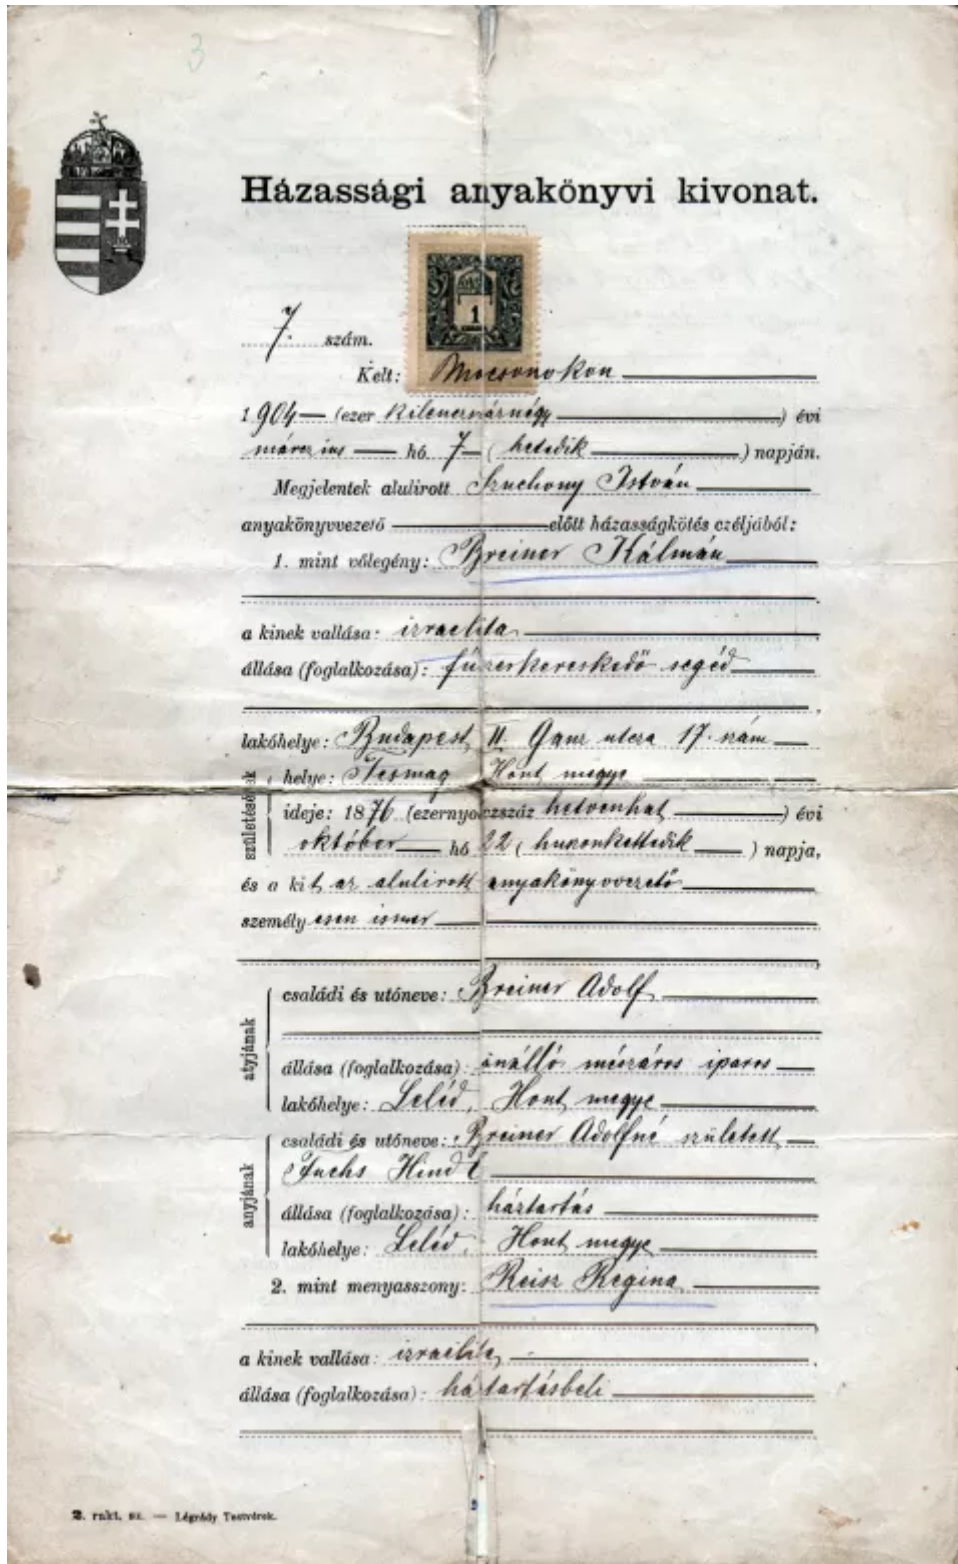 3
Házassági anyakönyvi kivonat.
1
7. szám.
Kelt: Mocsonokon
1904 (ezer kilencszáznégy) évi
márczius hó 7 (hetedik) napján.
Megjelentek alulirott Szuchony István
anyakönyvvezető előtt házasságkötés czéljából:
1. mint vőlegény: Breiner Kálmán
a kinek vallása: izraelita
állása (foglalkozása): fűszerkereskedő segéd
lakóhelye: Budapest, II. Ganz utcza 17. szám
születésének
helye: Tesmag Hont megye
ideje: 1876 (ezernyolczszáz hetvenhat) évi
október hó 22 (huszonkettedik) napja,
és a kit az alulirott anyakönyvvezető
személyesen ismer
atyjának
családi és utóneve: Breiner Adolf
állása (foglalkozása): önálló mészáros iparos
lakóhelye: Leléd, Hont megye
anyjának
családi és utóneve: Breiner Adolfné született
Fuchs Hindl
állása (foglalkozása): háztartás
lakóhelye: Leléd, Hont megye
2. mint menyasszony: Reisz Regina
a kinek vallása: izraelita,
állása (foglalkozása): háztartásbeli
2. rakt. sz. — Légrády Testvérek.